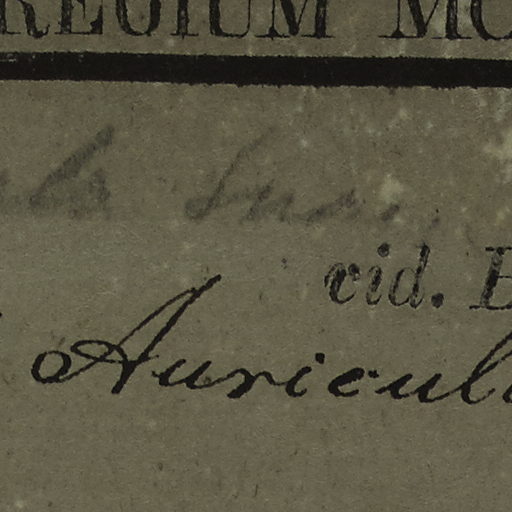 REGIUM MO
vid. B
Auricul